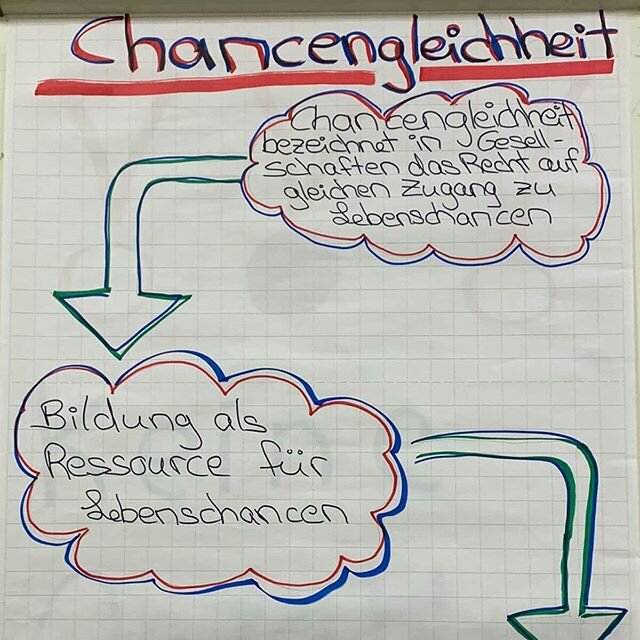 Chancengleichheit
Chancengleichheit
bezeichnet in Gesell-
schaften das Recht auf
gleichen Zugang zu
Lebenschancen
Bildung als
Ressource für
Lebenschancen